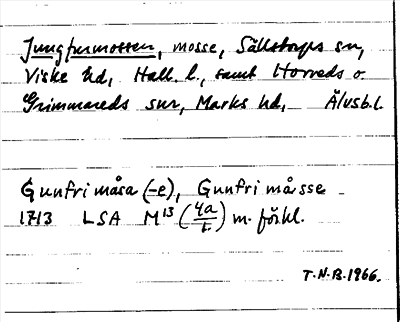 Jungfrumossen, mosse, Sällstorps sn,
Viske hd, Hall. l., samt Horreds o.
Grimmareds snr, Marks hd, Älvsb. l.
Gunfri måsa (-e), Gunfri måsse
1713 LSA M¹³ (4a/1) m. förkl.
T.N.B. 1966.